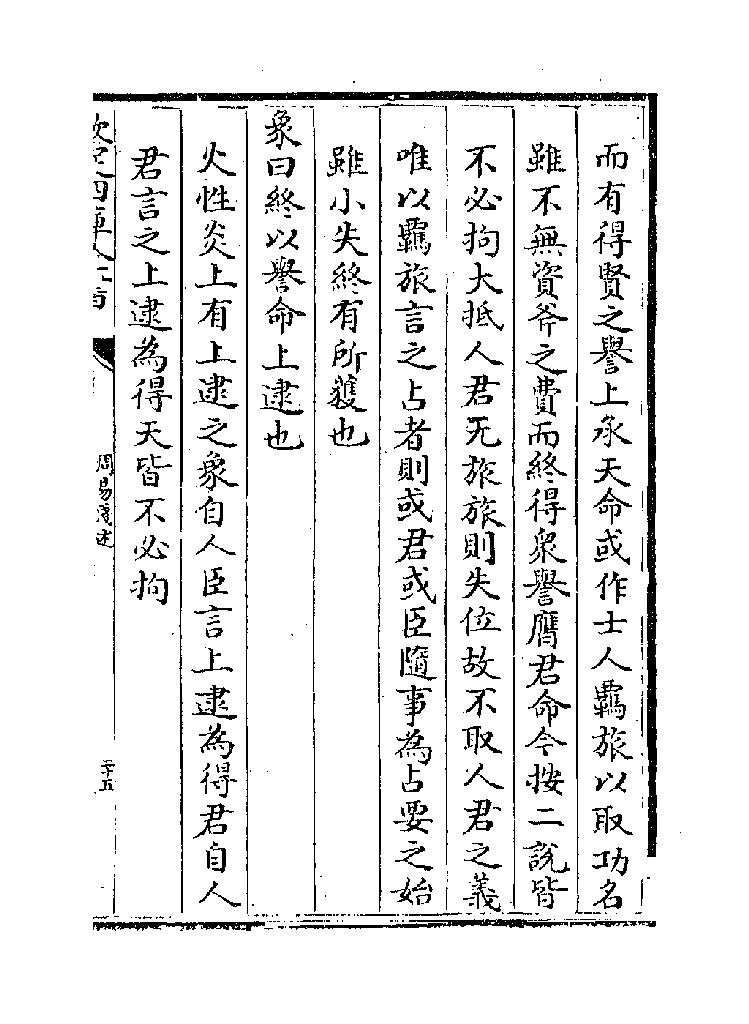 而有得賢之譽上承天命或作士人羈旅以取功名
雖不無資斧之費而終得衆譽膺君命今按二說皆
不必拘大抵人君无旅旅則失位故不取人君之義
唯以羈旅言之占者則或君或臣隨事為占要之始
雖小失終有所獲也
象曰終以譽命上逮也
火性炎上有上逮之象自人臣言上逮為得君自人
君言之上逮為得天皆不必拘
欽定四庫全書
周易淺述
二十五